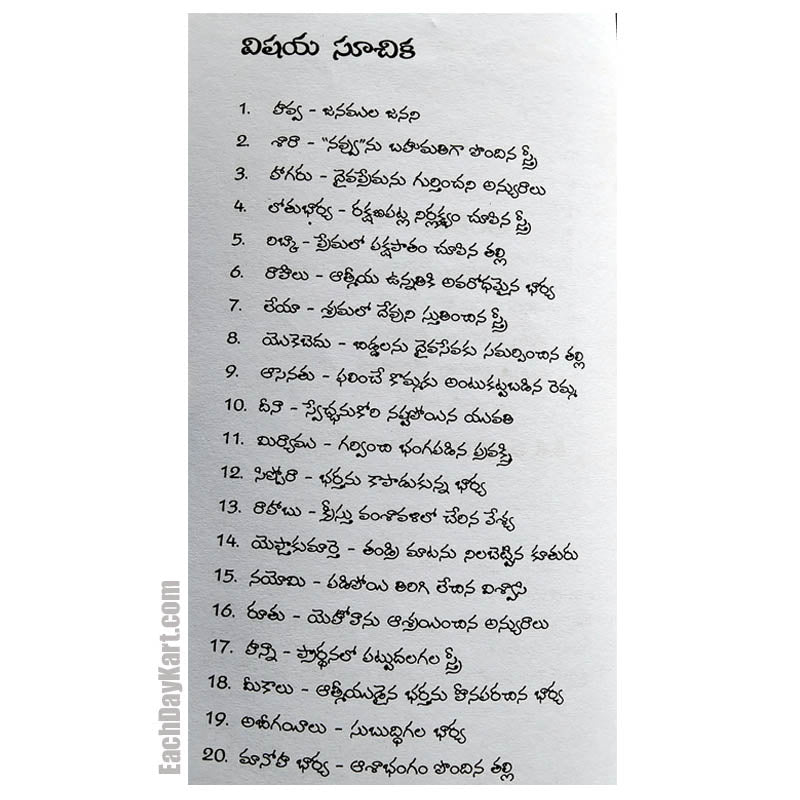 విషయ సూచిక
1. హవ్వ - జనముల జనని
2. శారా - "నవ్వు"ను బహుమతిగా పొందిన స్త్రీ
3. హాగరు - దైవప్రేమను గుర్తించని అన్యురాలు
4. లోతుభార్య - రక్షణపట్ల నిర్లక్ష్యం చూపిన స్త్రీ
5. రిబ్కా - ప్రేమలో పక్షపాతం చూపిన తల్లి
6. రాహేలు - ఆత్మీయ ఉన్నతికి అవరోధమైన భార్య
7. లేయా - శ్రమలో దేవుని స్తుతించిన స్త్రీ
8. యొకెబెదు - బిడ్డలను దైవసేవకు సమర్పించిన తల్లి
9. ఆసెనతు - ఫలించే కొమ్మకు అంటుకట్టబడిన రెమ్మ
10. దీనా - స్వేచ్ఛనుకోరి నష్టపోయిన యువతి
11. మిర్యాము - గర్వించి భంగపడిన ప్రవక్త్రి
12. సిప్పోరా - భర్తను కాపాడుకున్న భార్య
13. రాహాబు - క్రీస్తు వంశావళిలో చేరిన వేశ్య
14. యెఫ్తాకుమార్తె - తండ్రి మాటను నిలబెట్టిన కూతురు
15. నయోమి - పడిపోయి తిరిగి లేచిన విశ్వాసి
16. రూతు - యెహోవాను ఆశ్రయించిన అన్యురాలు
17. హన్నా - ప్రార్థనలో పట్టుదలగల స్త్రీ
18. మీకాలు - ఆత్మీయుడైన భర్తను హీనపరచిన భార్య
19. అబీగయీలు - సుబుద్ధిగల భార్య
20. మానోహ భార్య - ఆశాభంగం పొందిన తల్లి
EachDayKart.com